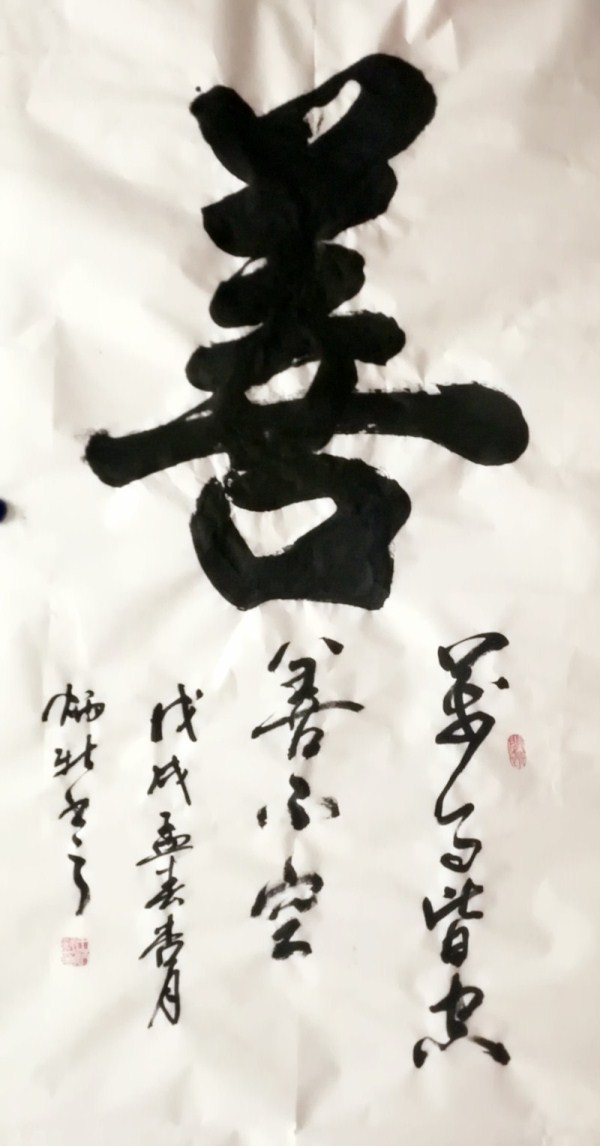 善
萬事皆空
善不空
戊戌孟春杏月
炳新書